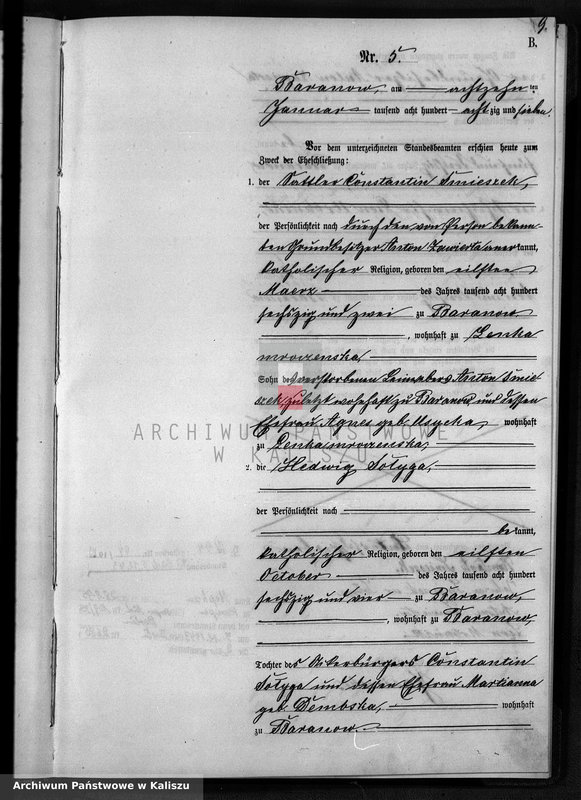 9.
B.
Nr. 5.
Baranow, am achtzehn ten
Januar tausend acht hundert achtzig und sieben.
Vor dem unterzeichneten Standesbeamten erschien heute zum
Zweck der Eheschließung:
1. der Sattler Constantin Smieszek,
der Persönlichkeit nach durch den von Person bekann-
ten Grundbesitzer Anton Zawierta anerkannt,
katholischer Religion, geboren den eilften
Maerz des Jahres tausend acht hundert
sechszig und zwei zu Baranow
, wohnhaft zu Lenka
mroczenska,
Sohn des verstorbenen Anton Smie-
szek zuletzt wohnhaft zu Baranow und dessen
Ehefrau Agnes geb. wohnhaft
zu Lenka mroczenska,
2. die Hedwig Sołyga,
der Persönlichkeit nach
bekannt,
katholischer Religion, geboren den eilften
October des Jahres tausend acht hundert
sechszig und vier zu Baranow,
, wohnhaft zu Baranow,
Tochter des Ackerbürgers Constantin
Sołyga und dessen Ehefrau Marianna
geb. Dembska, wohnhaft
zu Baranow
ARCHIWUM PAŃSTWOWE
W KALISZU
Archiwum Państwowe w Kaliszu